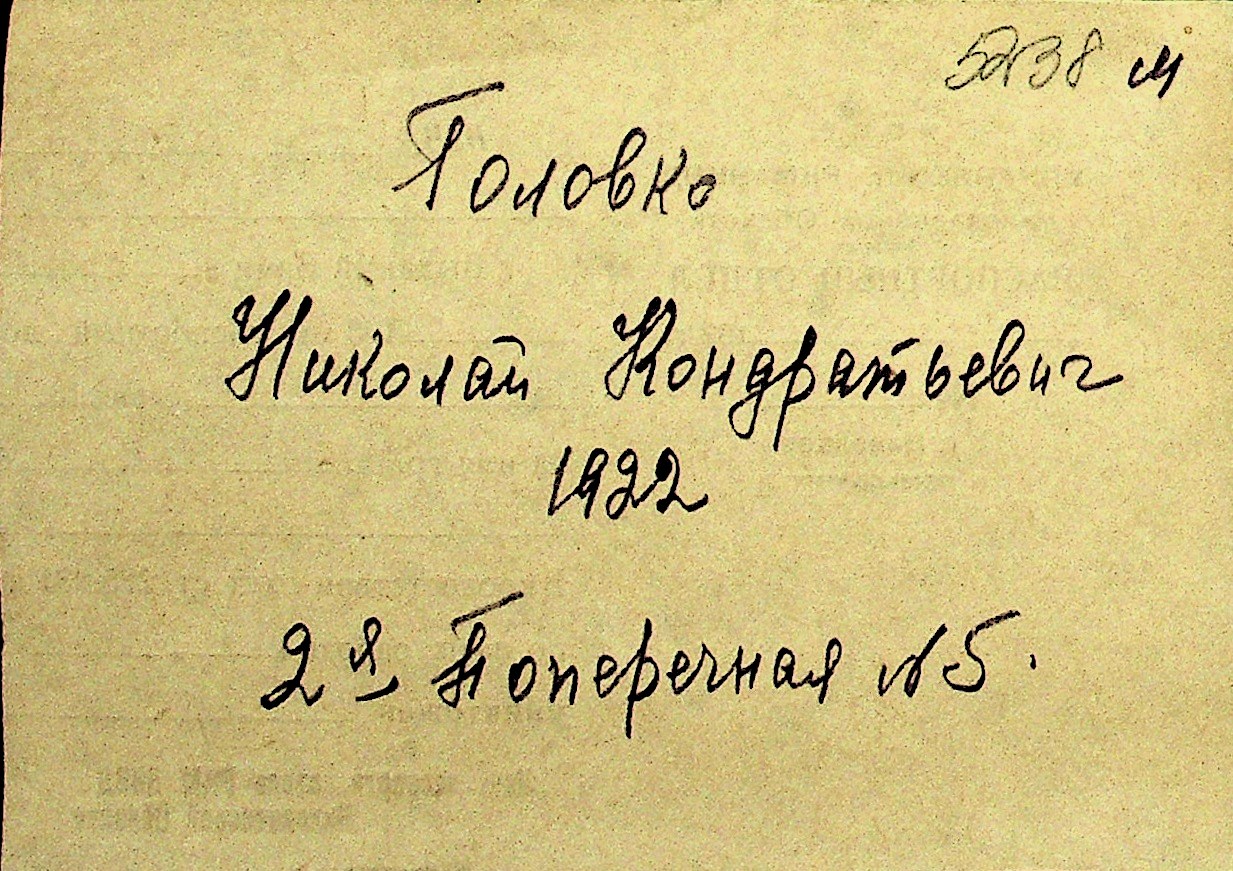 5238 м
Головко
Николай Кондратьевич
1922
2я Поперечная № 5.